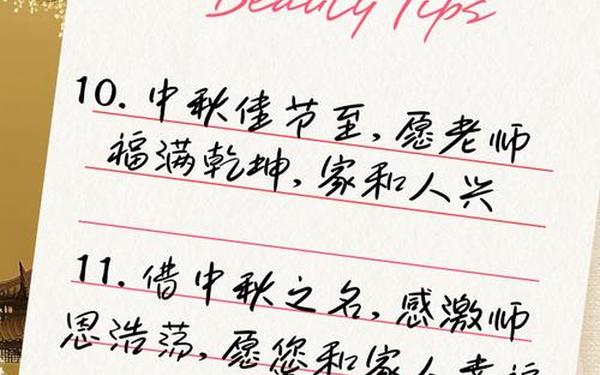 Beauty Tips
10. 中秋佳节至,愿老师
福满乾坤,家和人兴
11. 借中秋之名,感激师
恩浩荡,愿您和家人幸福